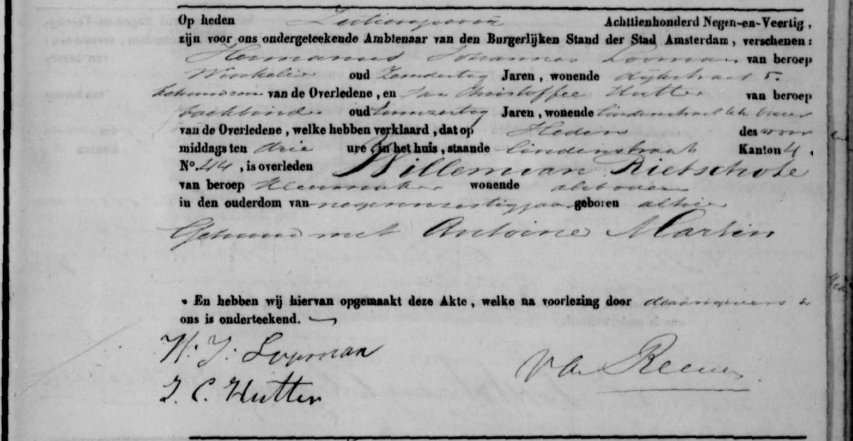 Op heden Achttienhonderd Negen-en-Veertig,
zijn voor ons ondergeteekende Ambtenaar van den Burgerlijken Stand der Stad Amsterdam, verschenen:
Hermanus Johannes Looman van beroep
Winkelier oud Jaren, wonende 5.
bekenden van de Overledene, en Jan Christoffel Hutter van beroep
boekbinder oud Jaren, wonende Lindenstraat
van de Overledene, welke hebben verklaard, dat op Heden des voor
middags ten drie ure in het huis, staande Lindenstraat Kanton 4.
No. 414, is overleden Willem van Rietschote
van beroep Kleermaker wonende alsboven
in den ouderdom van jaar geboren alhier
Gehuwd met Antoine Martin
En hebben wij hiervan opgemaakt deze Akte, welke na voorlezing door de aangevers &
ons is onderteekend.
H: J: Looman
J. C. Hutter